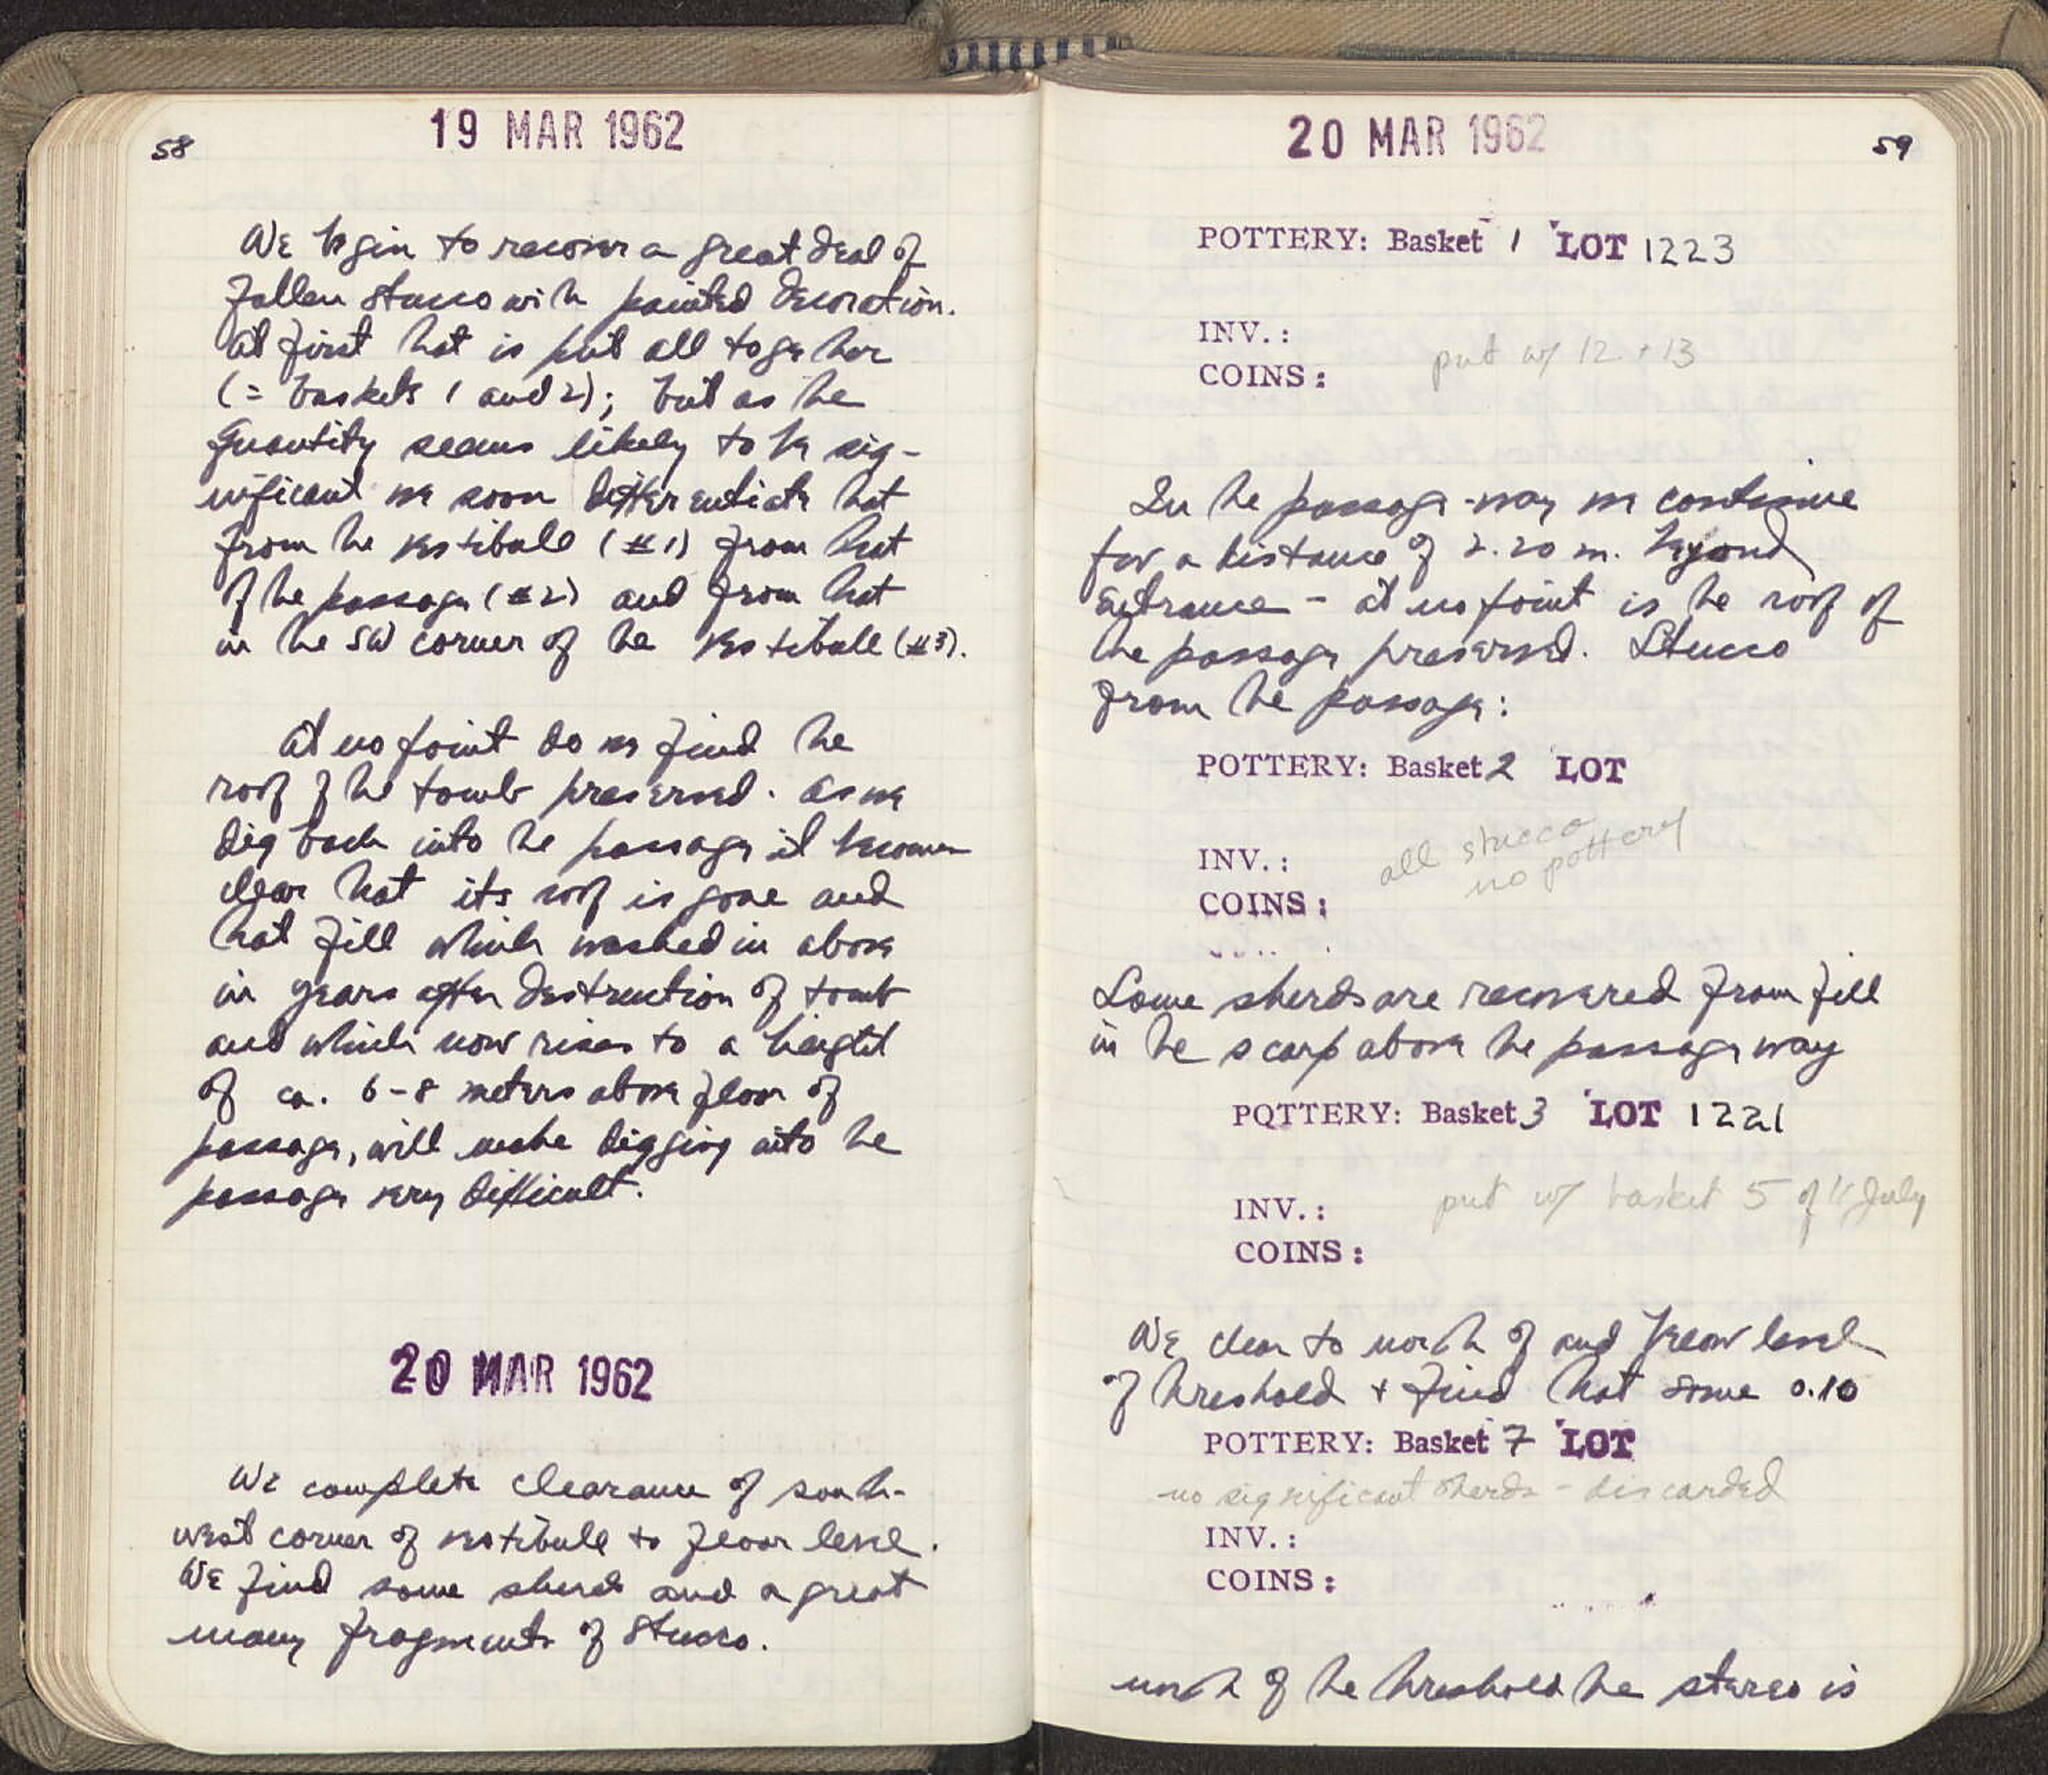 58
19 MAR 1962
We begin to recover a great deal of
fallen stucco with painted decoration.
At first that is put all together
(= baskets 1 and 2); but as the
quantity seems likely to be sig-
nificant we soon differentiate that
from the vestibule (#1) from that
of the passage (#2) and from that
in the SW corner of the vestibule (#3).
At no point do we find the
roof of the tomb preserved. As we
dig back into the passage it becomes
clear that its roof is gone and
that fill which washed in above
in years after destruction of tomb
and which now rises to a height
of ca. 6-8 meters above floor of
passage, will make digging into the
passage very difficult.
20 MAR 1962
We complete clearance of south-
west corner of vestibule to floor level.
We find some sherds and a great
many fragments of stucco.
20 MAR 1962
59
POTTERY: Basket 1 LOT 1223
INV.:
put w/ 12 + 13
COINS:
In the passage-way we continue
for a distance of 2.20 m. beyond
entrance - at no point is the roof of
the passage preserved. Stucco
from the passage:
POTTERY: Basket 2 LOT
all stucco
no pottery
INV.:
COINS:
Some sherds are recovered from fill
in the scarp above the passage way
POTTERY: Basket 3 LOT 1221
put w/ basket 5 of 11 July
INV.:
COINS:
We clear to north of and below level
of threshold + find that some 0.10
POTTERY: Basket 7 LOT
no significant sherds - discarded
INV.:
COINS:
north of the threshold the stereo is